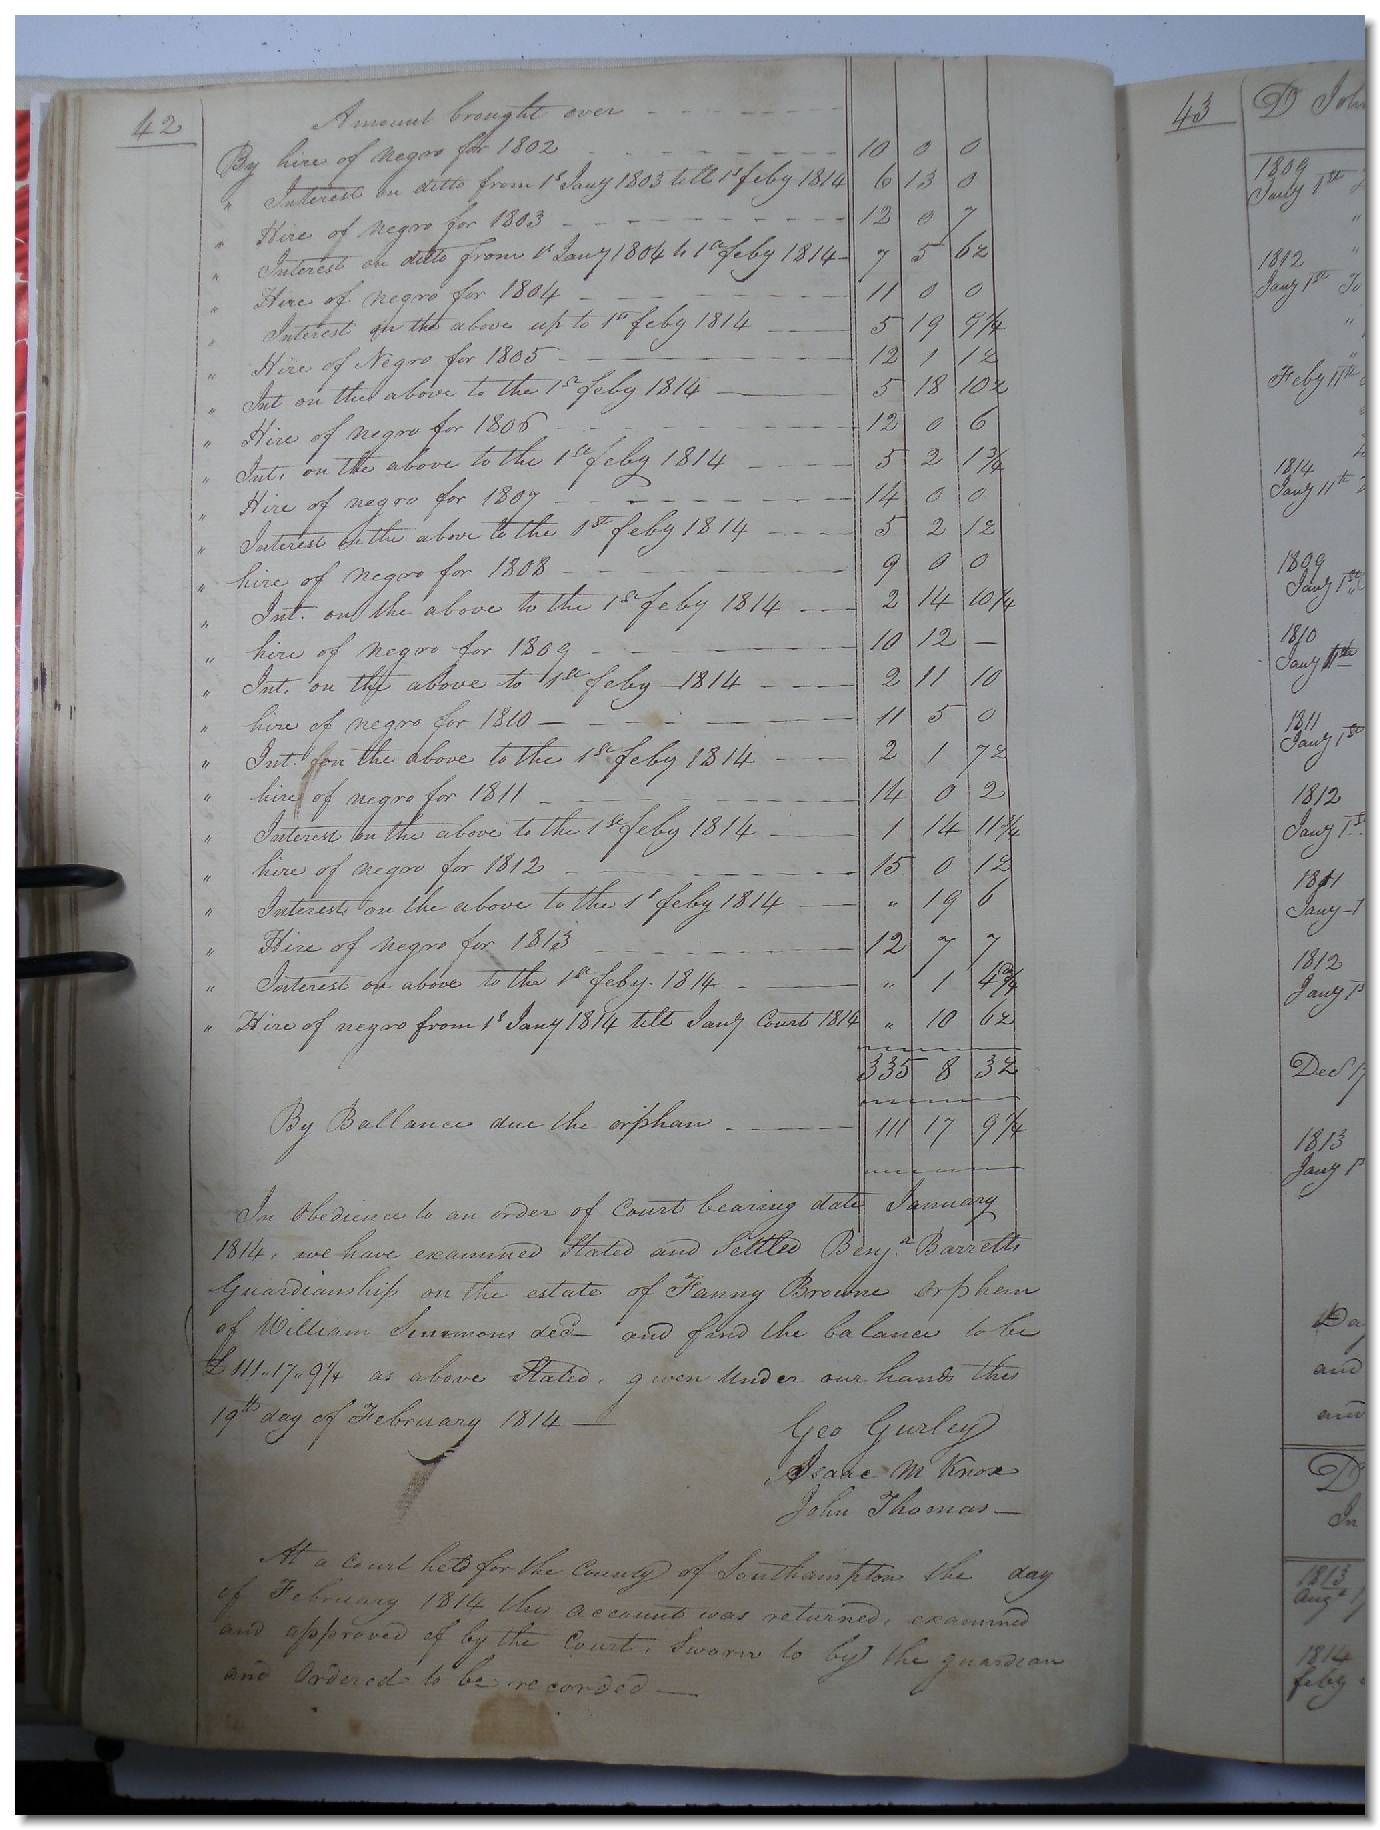 42
Amount brought over
By hire of negro for 1802 10 0 0
" Interest on ditto from 1st Jany 1803 till 1st feby 1814 6 13 0
" Hire of negro for 1803 12 0 7
" Interest on ditto from 1st Jany 1804 to 1st feby 1814 7 5 6½
" Hire of negro for 1804 11 0 0
" Interest on the above up to 1st feby 1814 5 19 9¼
" Hire of Negro for 1805 12 1 1½
" Int on the above to the 1st feby 1814 5 18 10½
" Hire of negro for 1806 12 0 6
" Int. on the above to the 1st feby 1814 5 2 1¾
" Hire of negro for 1807 14 0 0
" Interest on the above to the 1st feby 1814 5 2 1½
" hire of negro for 1808 9 0 0
" Int. on the above to the 1st feby 1814 2 14 10¼
" hire of negro for 1809 10 12 —
" Int. on the above to 1st feby 1814 2 11 10
" hire of negro for 1810 — 11 5 0
" Int. on the above to the 1st feby 1814 2 1 7½
" hire of negro for 1811 14 0 2
" Interest on the above to the 1st feby 1814 1 14 11¾
" hire of negro for 1812 15 0 1½
" Interest on the above to the 1st feby 1814 " 19 6
" Hire of negro for 1813 12 7 7
" Interest on above to the 1st feby. 1814 " 1
" Hire of negro from 1st Jany 1814 till Jany Court 1814 " 10 6½
335 8 3½
By Ballance due the orphan 111 17 9¼
In Obedience to an order of Court bearing date January
1814, we have examined Stated and Settled Benjn Barretts
Guardianship on the estate of Fanny Browne orphan
of William Simmons decd— and find the balance to be
£111.17.9¼ as above Stated, given under our hands this
19th day of February 1814 —
Geo Gurley
Isaac M Knox
John Thomas —
At a Court held for the County of Southampton the day
of February 1814 this account was returned, examined
and approved of by the Court, Sworn to by the guardian
and Ordered to be recorded —
43
D John
1809
Jany 1st
1812
Jany 1st To
Feby 11th
1814
Jany 11th
1809
Jany 1st
1810
Jany
1811
Jany 1st
1812
Jany 1st
1811
Jany
1812
Jany 1s
Decr 1
1813
Jany 1
and
and
D
In
1813
Augt
1814
feby